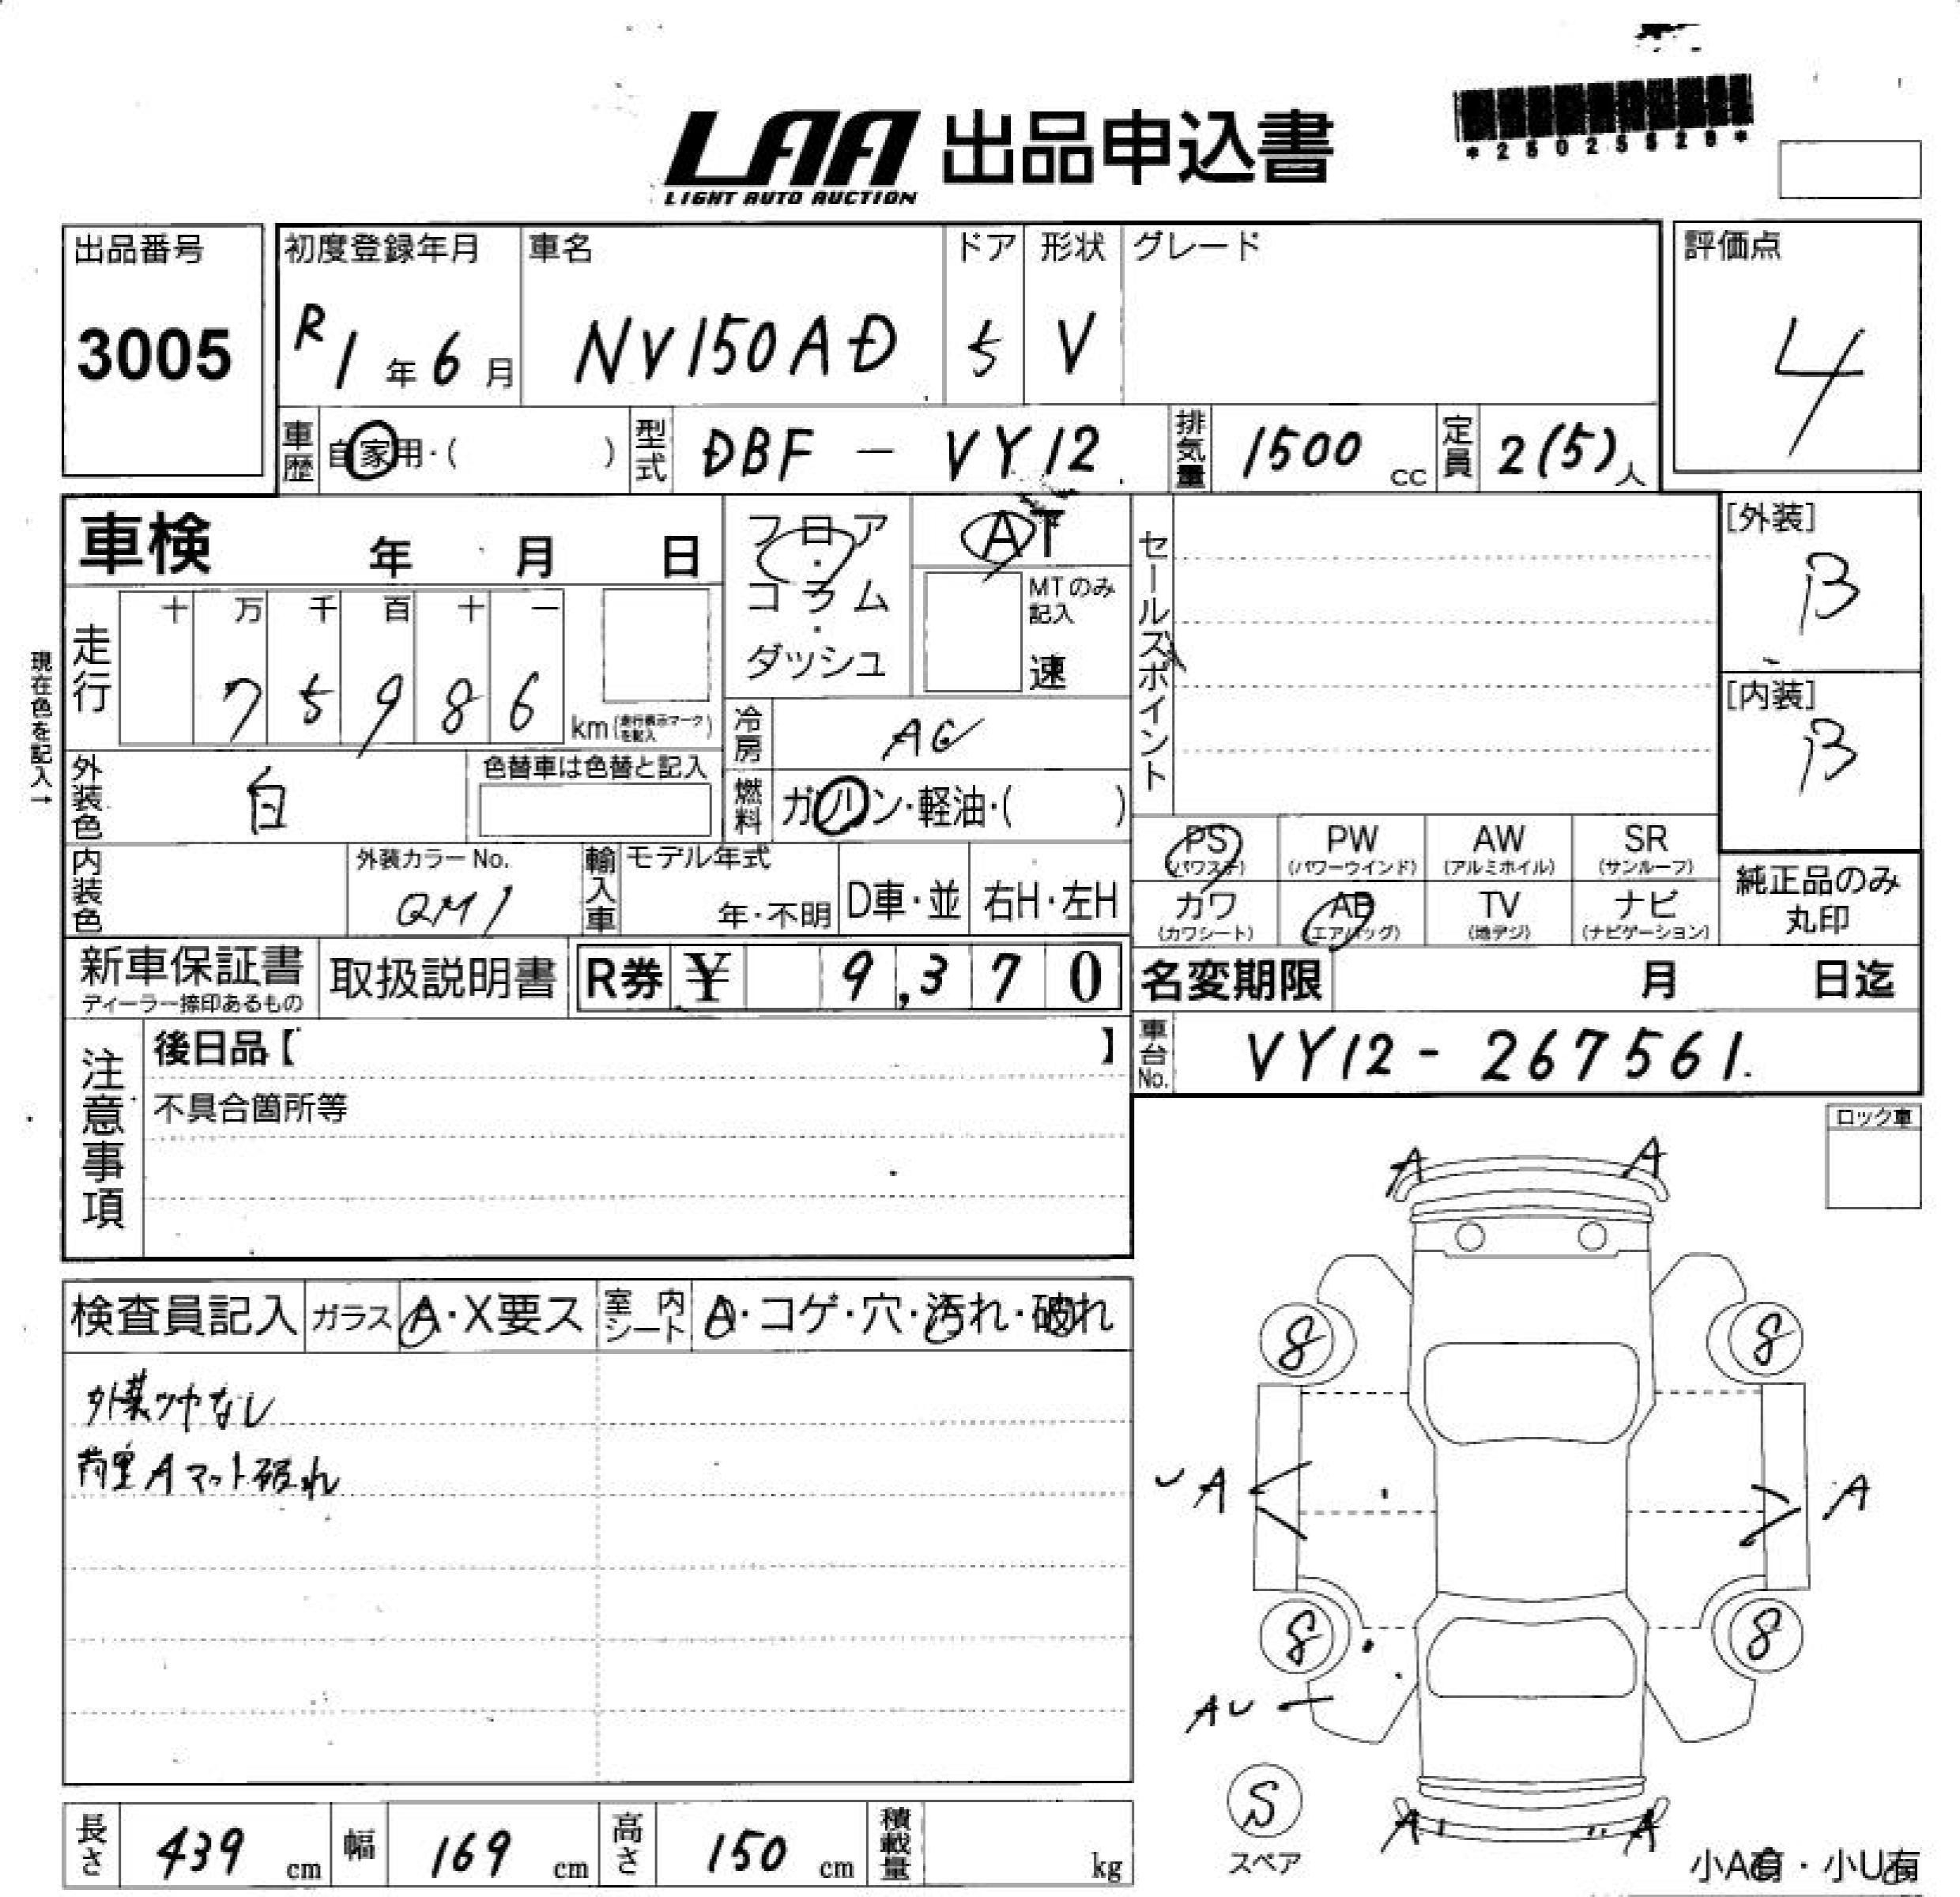 LAA 出品申込書
LIGHT AUTO AUCTION
出品番号 初度登録年月 車名 ドア 形状 グレード 評価点
3005 R1年6月 NV150AD 5 V 4
車歴 自家用・( ) 型式 DBF - VY12 排気量 1500cc 定員 2(5)人
車検 年 月 日
フロア・コラム・ダッシュ
AT
MTのみ記入
速
セールスポイント
[外装]
B
[内装]
B
現在色を記入→
走行 十 万 千 百 十 一
7 5 9 8 6 km (走行表示マークを記入)
冷房 AC
外装色 白 色替車は色替と記入
燃料 ガソリン・軽油・( )
内装色 外装カラーNo. QM1
輸入車 モデル年式 年・不明 D車・並 右H・左H
PS (パワステ) PW (パワーウインド) AW (アルミホイル) SR (サンルーフ)
カワ (カワシート) AB (エアバッグ) TV (地デジ) ナビ (ナビゲーション)
純正品のみ
丸印
新車保証書 ディーラー捺印あるもの 取扱説明書 R券 ¥ 9,370 名変期限 月 日迄
車台No. VY12 - 267561.
注意事項
後日品【 】
不具合箇所等
ロック車
A A
8 8
検査員記入 ガラス A・X要ス 室内シート A・コゲ・穴・汚れ・破れ
外装ツヤなし
荷室Aマット破れ
A A
8 8
AU
S
スペア
A A
小A有・小U有
長さ 439 cm 幅 169 cm 高さ 150 cm 積載量 kg